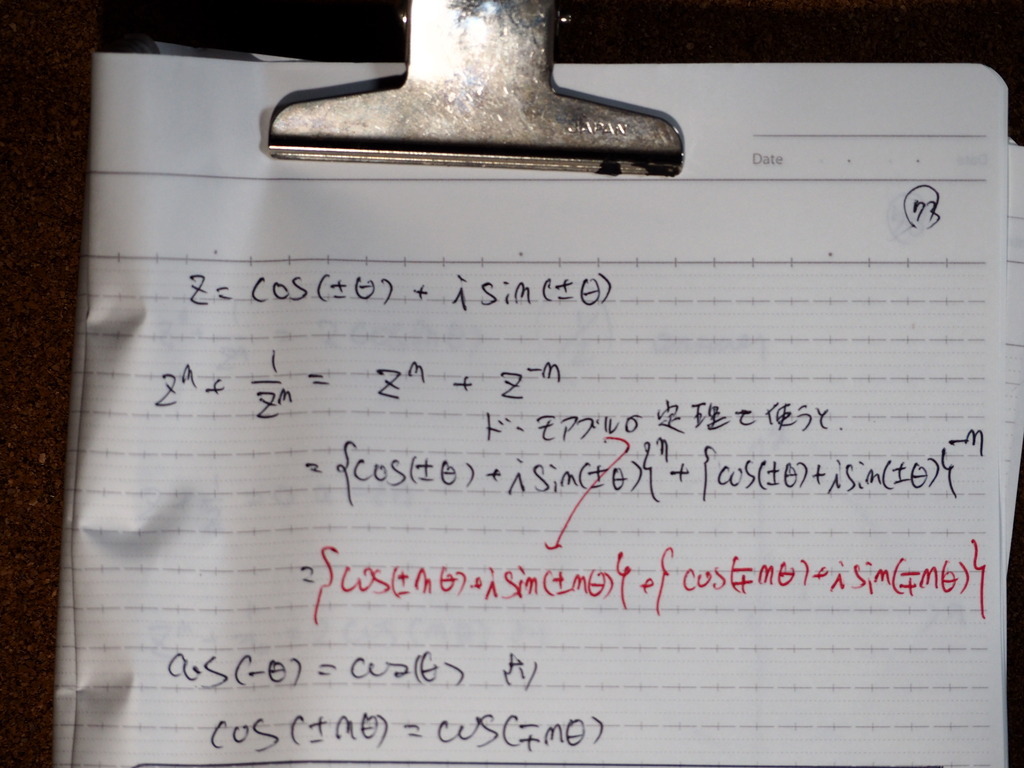 JAPAN
Date
73
z = cos(±θ) + i sin(±θ)
zⁿ + 1/zⁿ = zⁿ + z⁻ⁿ
ド・モアブルの定理を使うと.
= {cos(±θ) + i sin(±θ)}ⁿ + {cos(±θ) + i sin(±θ)}⁻ⁿ
= {cos(±nθ) + i sin(±nθ)} + {cos(∓nθ) + i sin(∓nθ)}
cos(-θ) = cos(θ) より
cos(±nθ) = cos(∓nθ)